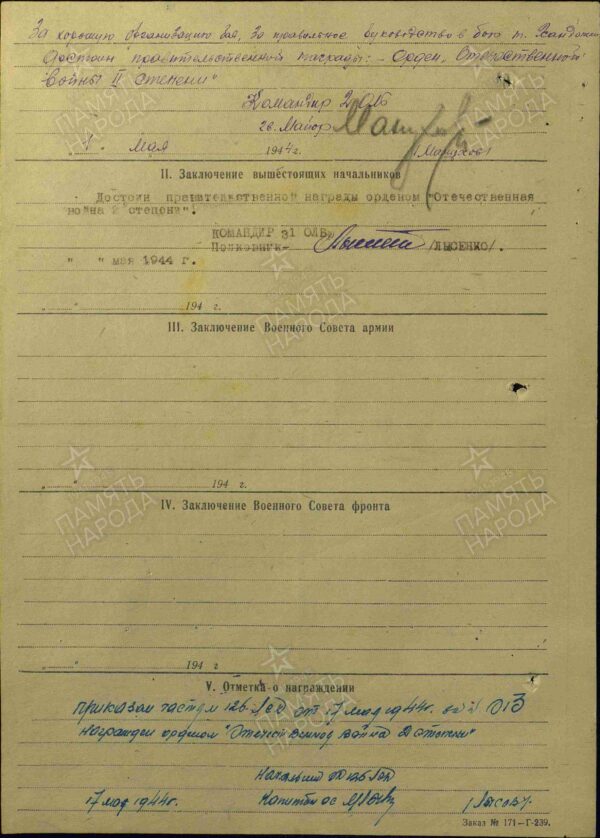 За хорошую организацию боя, за правильное руководство в бою т.
Достоин правительственной награды: - Орден, Отечественной
войны II степени"
Командир 2 ОЛБ
гв. Майор
" " мая 1944 г. (Мацухов)
II. Заключение вышестоящих начальников
Достоин правительственной награды орденом "Отечественная
война 2 степени".
КОМАНДИР 31 ОЛБр
Полковник- /ЛЫСЕНКО/.
" " мая 1944 г.
" " 194 г.
III. Заключение Военного Совета армии
" " 194 г.
IV. Заключение Военного Совета фронта
" " 194 г
V. Отметка о награждении
приказом частям 126 от 17 мая 1944г. за № 013
Награжден орденом "Отечественная война II степени"
17 мая 1944г. Капитан
Заказ № 171—Г-239.
ПАМЯТЬ
НАРОДА